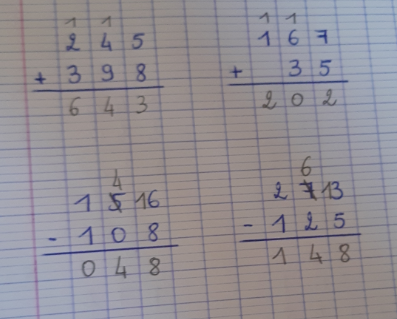 1 1
2 4 5
+ 3 9 8
6 4 3
1 1
1 6 7
+ 3 5
2 0 2
4
1 5 16
- 1 0 8
0 4 8
6
2 7 13
- 1 2 5
1 4 8